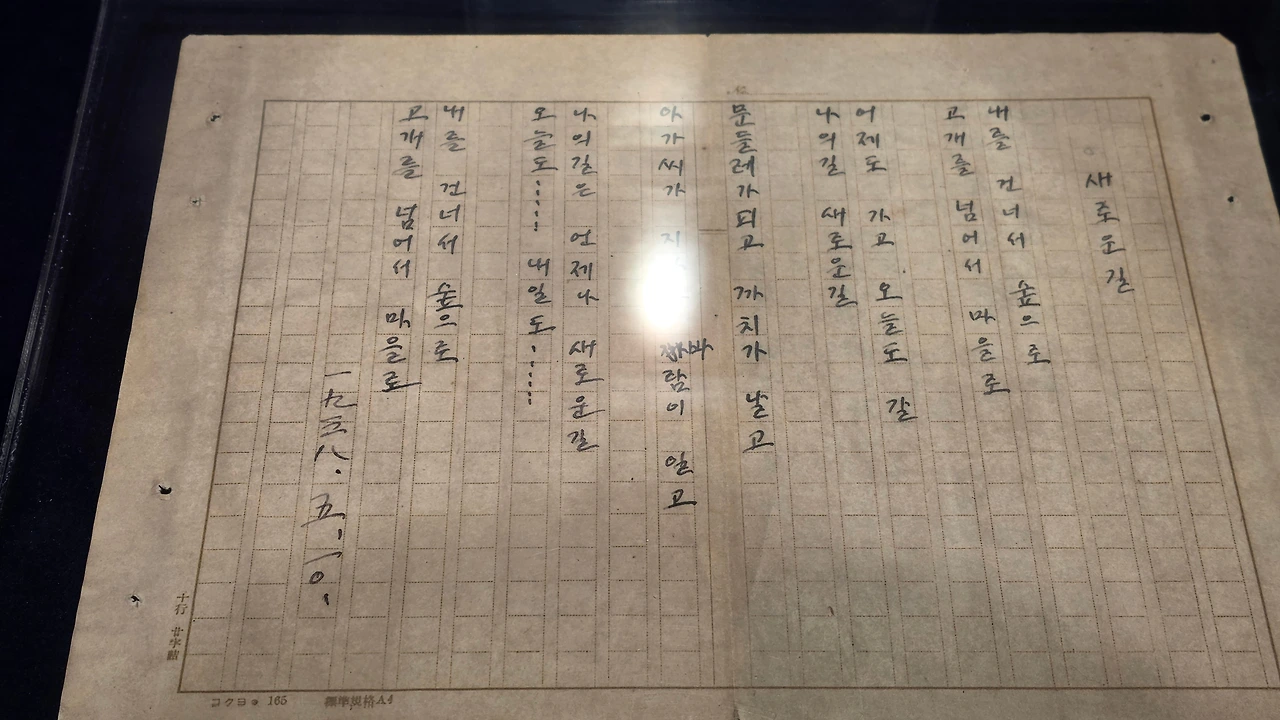 새로운길
내를 건너서 숲으로
고개를 넘어서 마을로
어제도 가고 오늘도 갈
나의길 새로운길
문들레가피고 까치가 날고
아가씨가 바람이 일고
나의길은 언제나 새로운길
오늘도…… 내일도……
내를 건너서 숲으로
고개를 넘어서 마을로
一九三八. 五. 一〇.
十行 廿字詰
コクヨ 165 標準規格A4